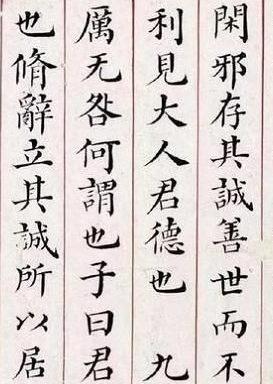 閑邪存其誠善世而不
利見大人君德也 九
厲无咎何謂也子曰君
也脩辭立其誠所以居